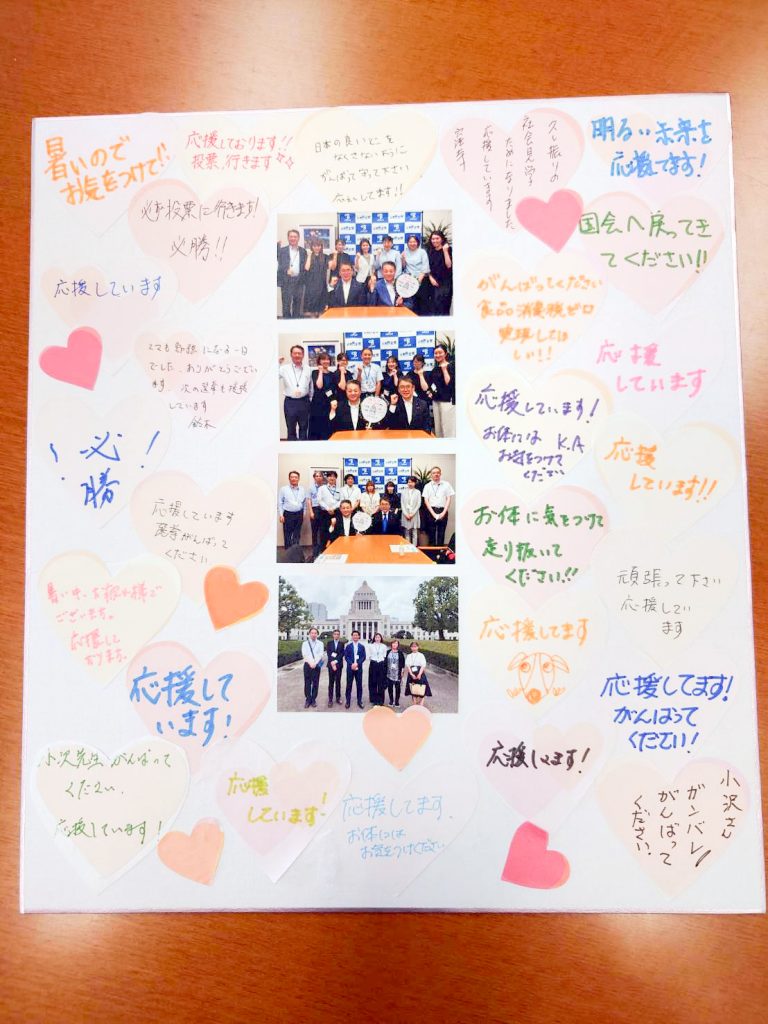 暑いので
お気をつけて!!
応援しております!!
投票、行きます
日本の良いところを
なくさないように
がんばって下さい
応えんしてます!!
久し振りの
社会見学
ためになりました
応援しています
明るい未来を
応援してます!
必ず投票に行きます!
必勝!!
国会へ戻ってき
てください!!
応援しています
がんばってください
食品消費税ゼロ
実現してほ
しい!!
とても勉強になる一日
でした。ありがとうござい
ます 次の選挙も応援
しています
鈴木
応援
しています
応援しています!
お体には K.A
お気をつけて
ください
!必勝!
応援
しています!!
応援しています
選挙がんばって
ください
お体に気をつけて
走り抜いて
ください!!
暑い中、お疲れ様で
ございます。
応援して
おります。
頑張って下さい
応援してい
ます
応援してます
応援して
います!
応援してます!
がんばって
ください!
小沢先生 がんばって
ください。
応援しています!
応援
しています!
応援してます。
お体には
お気をつけください
応援します!
小沢さん
ガンバレ!
がんばって
ください!